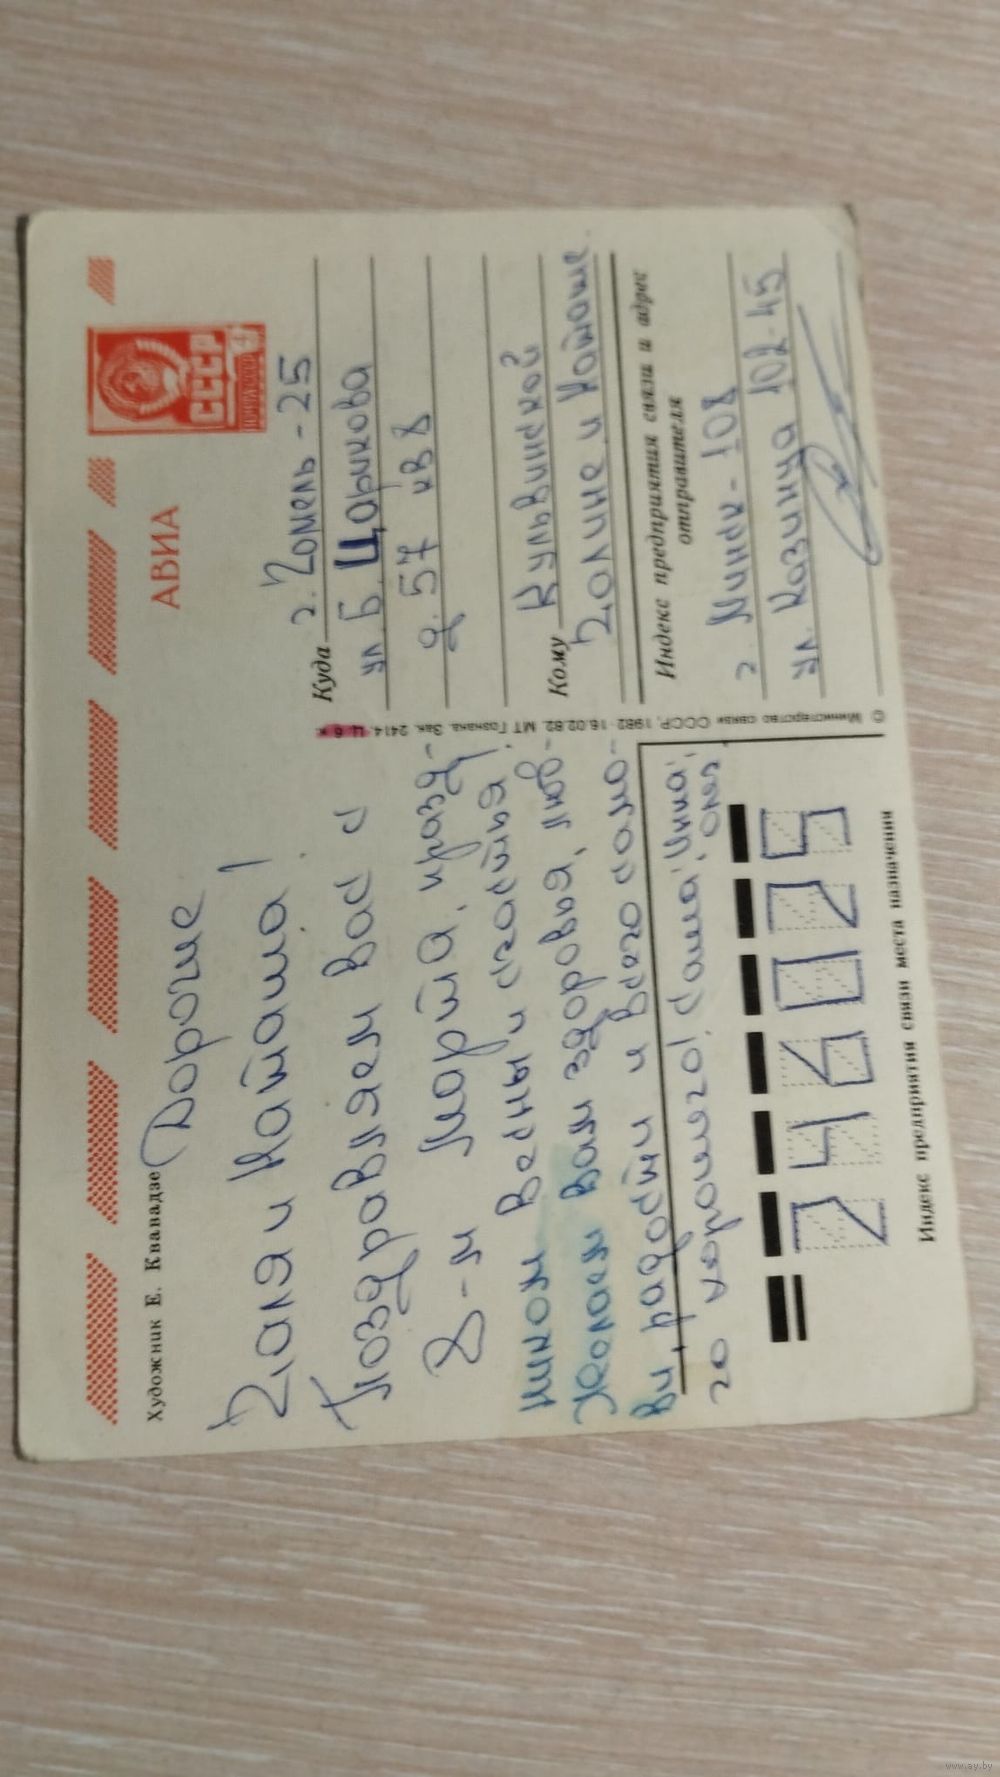 Художник Е. Квавадзе
Дорогие
Галя и Наташа!
Поздравляем Вас с
8-м Марта, празд-
ником Весны и счастья!
Желаем Вам здоровья, люб-
ви, радости и всего само-
го хорошего! Саша, Инна,
Оля
Индекс предприятия связи места назначения
246025
© Министерство связи СССР, 1982 · 16.02.82. МТ Гознака. Зак. 2414. Ц. 6 к.
АВИА
СССР
Куда г. Гомель-25
ул. Б. Царикова
д. 57 кв 8
Кому Кульвинской
Галине и Наташе.
Индекс предприятия связи и адрес
отправителя
г. Минск-108
ул. Казинца 102-45
www.ay.by